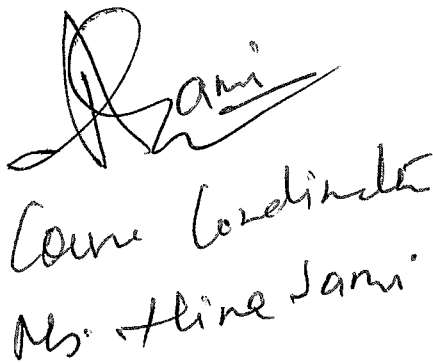 Sami
Course Coordinator
Ms. Hina Sami